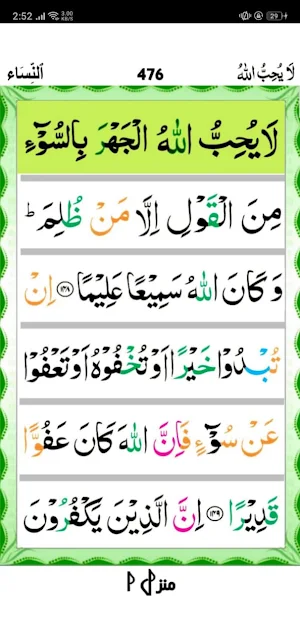 2:52 3.00 KB/S 29
لَا يُحِبُّ اللهُ 476 اَلنِّسَاء
لَا يُحِبُّ اللهُ الْجَهْرَ بِالسُّوْٓءِ
مِنَ الْقَوْلِ اِلَّا مَنْ ظُلِمَ ؕ
وَ كَانَ اللهُ سَمِيْعًا عَلِيْمًا ۝۱۴۸ اِنْ
تُبْدُوْا خَيْرًا اَوْ تُخْفُوْهُ اَوْ تَعْفُوْا
عَنْ سُوْٓءٍ فَاِنَّ اللهَ كَانَ عَفُوًّا
قَدِيْرًا ۝۱۴۹ اِنَّ الَّذِيْنَ يَكْفُرُوْنَ
منزل ۱